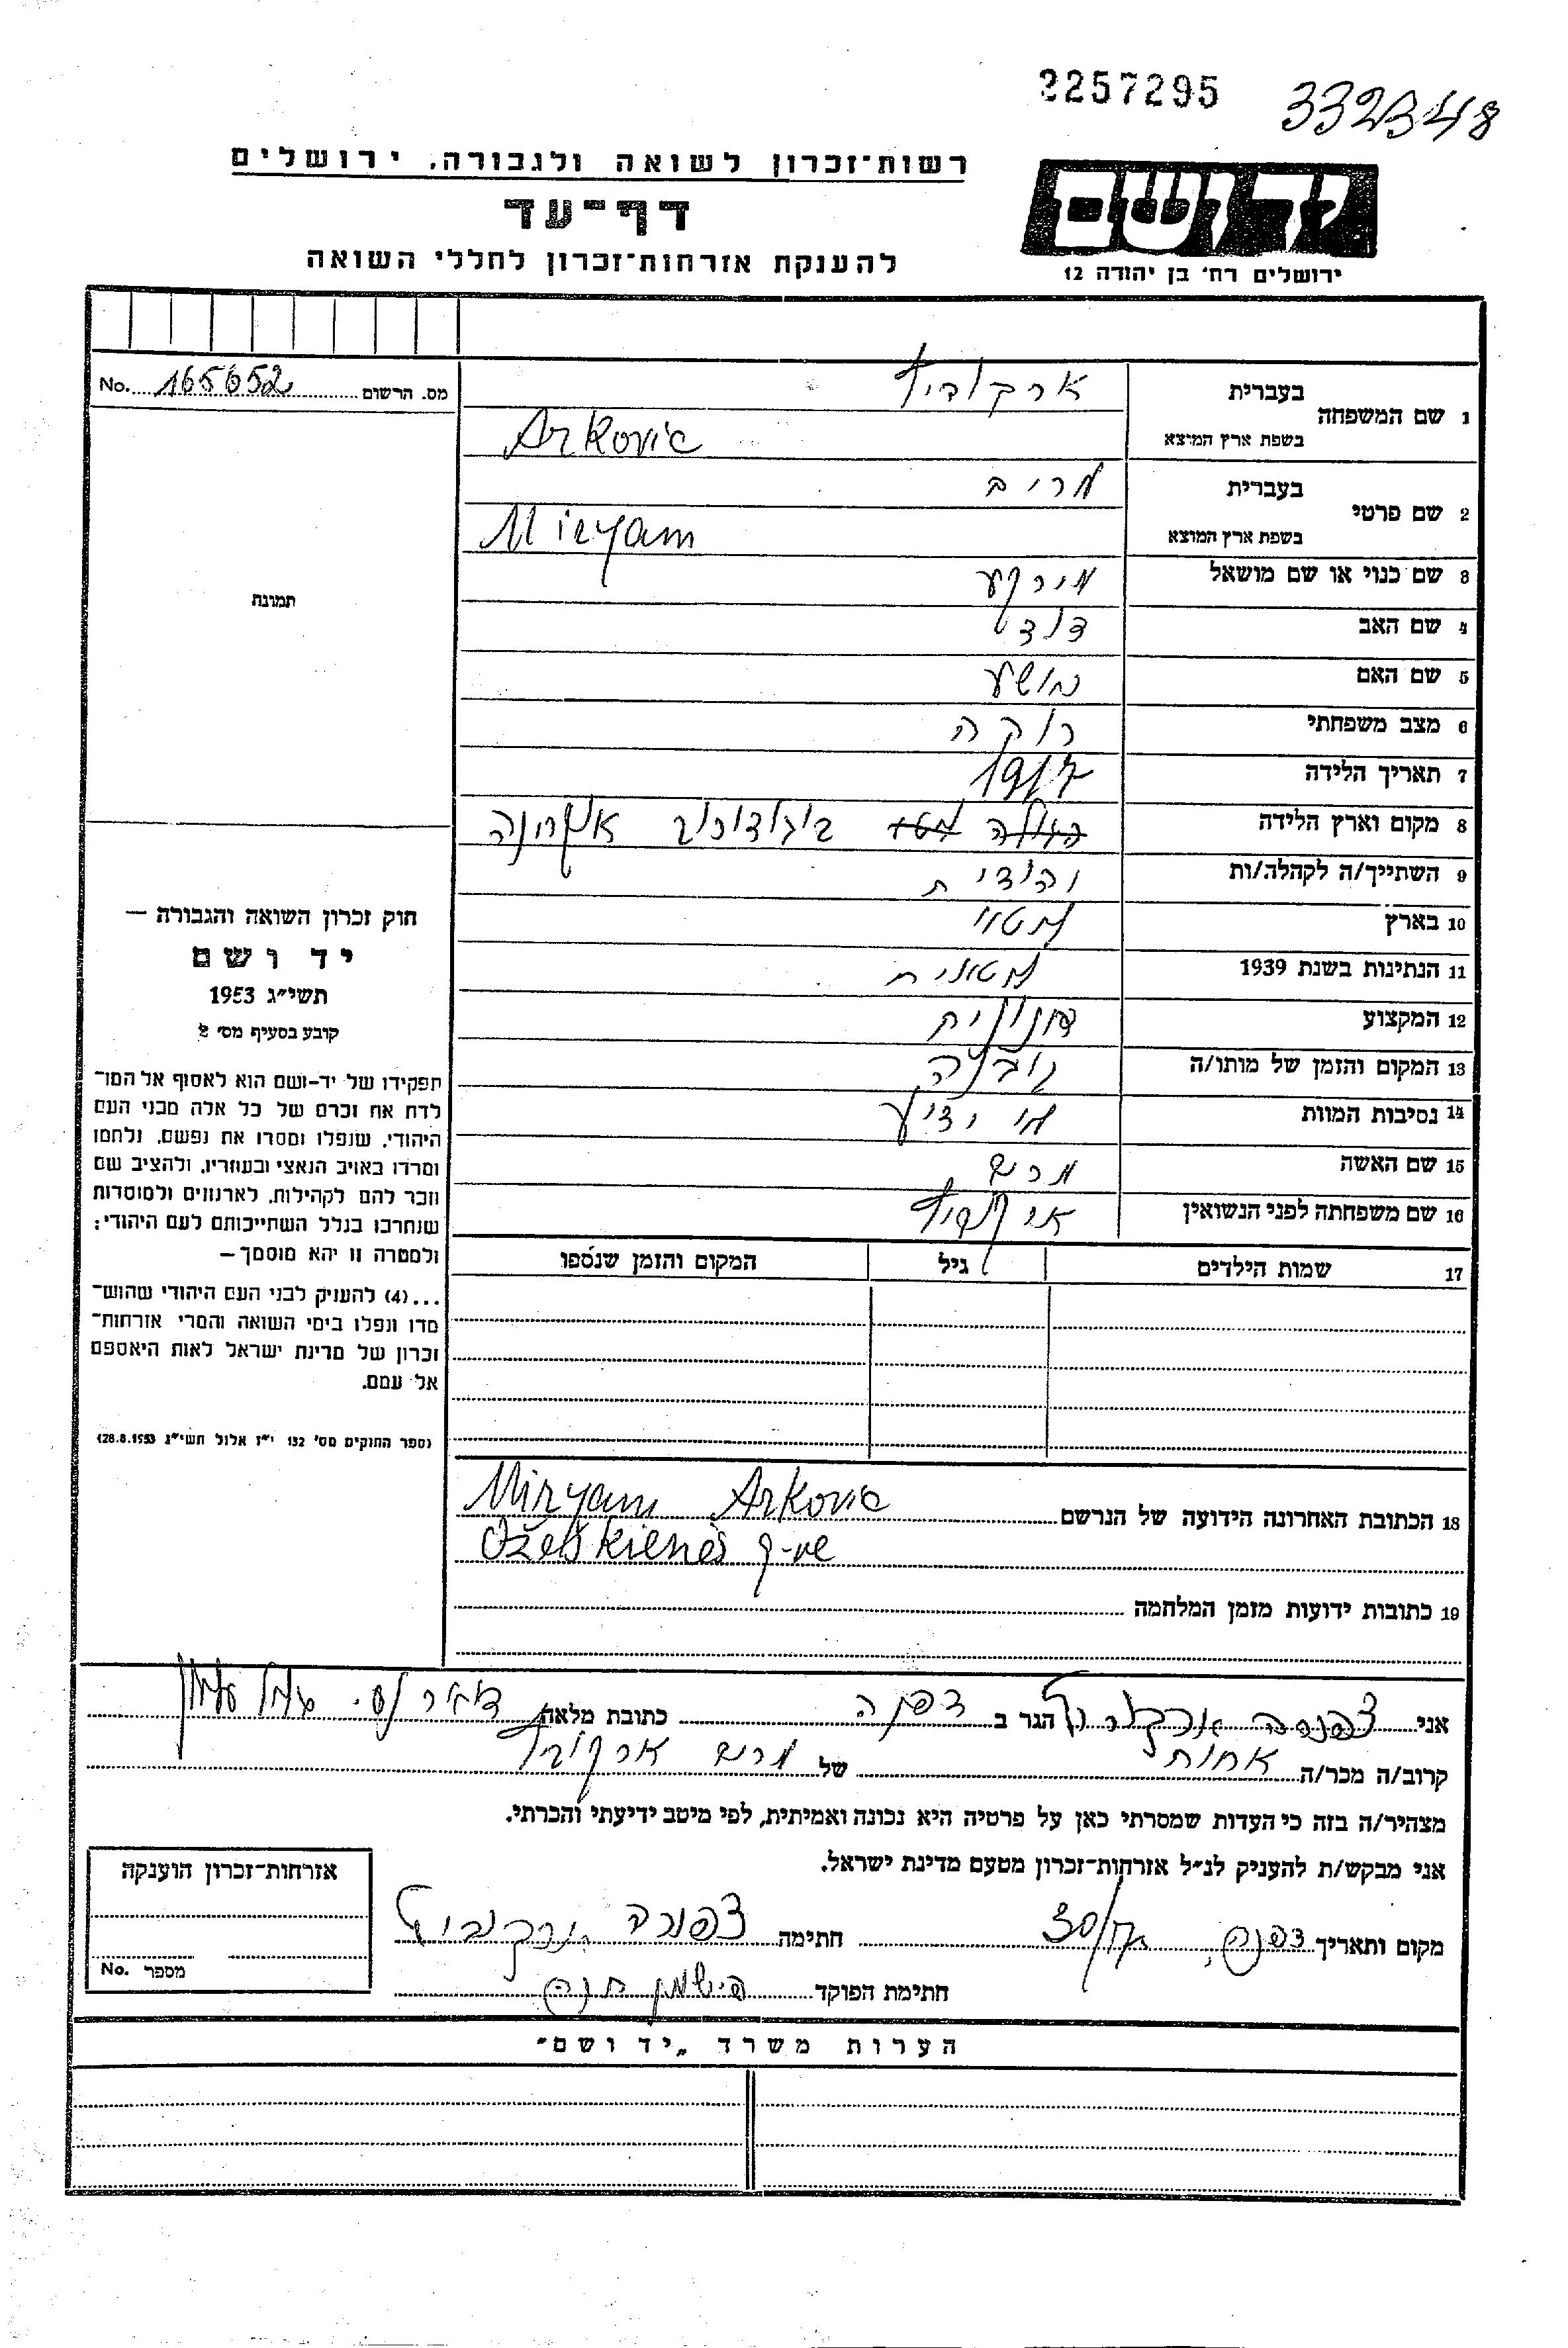 2257295 332348
רשות-זכרון לשואה ולגבורה, ירושלים
דף-עד
להענקת אזרחות-זכרון לחללי השואה
יד ושם
ירושלים רח' בן יהודה 12
מס. הרשום 165652 No.
1 שם המשפחה בעברית ארקוביץ
בשפת ארץ המוצא Arkovic
2 שם פרטי בעברית מרים
בשפת ארץ המוצא Miryam
3 שם כנוי או שם מושאל מירקע
4 שם האב דוד
5 שם האם
6 מצב משפחתי רוקה
7 תאריך הלידה 1917
8 מקום וארץ הלידה
9 השתייך/ה לקהלה/ות יהודית
10 בארץ
11 הנתינות בשנת 1939
12 המקצוע
13 המקום והזמן של מותו/ה
14 נסיבות המוות
15 שם האשה מרים
16 שם משפחתה לפני הנשואין ארקוביץ
17 שמות הילדים גיל המקום והזמן שנספו
תמונה
חוק זכרון השואה והגבורה —
יד ושם
תשי"ג 1953
קובע בסעיף מס' 2
תפקידו של יד-ושם הוא לאסוף אל המו-
לדת את זכרם של כל אלה מבני העם
היהודי, שנפלו ומסרו את נפשם, נלחמו
ומרדו באויב הנאצי ובעוזריו, ולהציב שם
וזכר להם לקהילות, לארגונים ולמוסדות
שנחרבו בגלל השתייכותם לעם היהודי;
ולמטרה זו יהא מוסמך —
...(4) להעניק לבני העם היהודי שהוש-
מדו ונפלו בימי השואה והמרי אזרחות-
זכרון של מדינת ישראל לאות היאספם
אל עמם.
(ספר החוקים מס' 132 י"ז אלול תשי"ג 28.8.1953)
18 הכתובת האחרונה הידועה של הנרשם Miryam Arkovic
Ožeškienės g-ve
19 כתובות ידועות מזמן המלחמה
אני צפורה ארקוביץ הגר ב דפנה כתובת מלאה
קרוב/ה מכר/ה אחות של מרים ארקוביץ
מצהיר/ה בזה כי העדות שמסרתי כאן על פרטיה היא נכונה ואמיתית, לפי מיטב ידיעתי והכרתי.
אני מבקש/ת להעניק לנ"ל אזרחות-זכרון מטעם מדינת ישראל.
מקום ותאריך דפנה, חתימה צפורה ארקוביץ
חתימת הפוקד
אזרחות-זכרון הוענקה
מספר No.
הערות משרד "יד ושם"